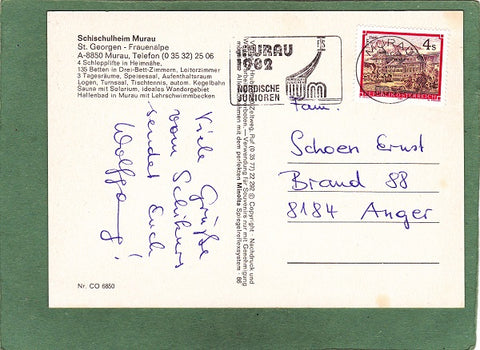 Schischulheim Murau
St. Georgen - Frauenalpe
A-8850 Murau, Telefon (0 35 32) 25 06
4 Schlepplifte in Heimnähe,
135 Betten in Drei-Bett-Zimmern, Leiterzimmer
3 Tagesräume, Speisesaal, Aufenthaltsraum
Logen, Turnsaal, Tischtennis, autom. Kegelbahn
Sauna mit Solarium, ideales Wandergebiet
Hallenbad in Murau mit Lehrschwimmbecken
MURAU
1982
NORDISCHE
JUNIOREN
MURAU
4 S
Viele Grüße
vom Schikurs
sendet Euch
Wolfgang!
Fam.
Schoen Ernst
Brand 88
8184 Anger
Ruf (0 35 77) 22 292 © Copyright Nachdruck und
Verwendung für Souvenirs nur mit Genehmigung des
mit dem perfekten Minolta Spiegelreflexsystem 86
Nr. CO 6850